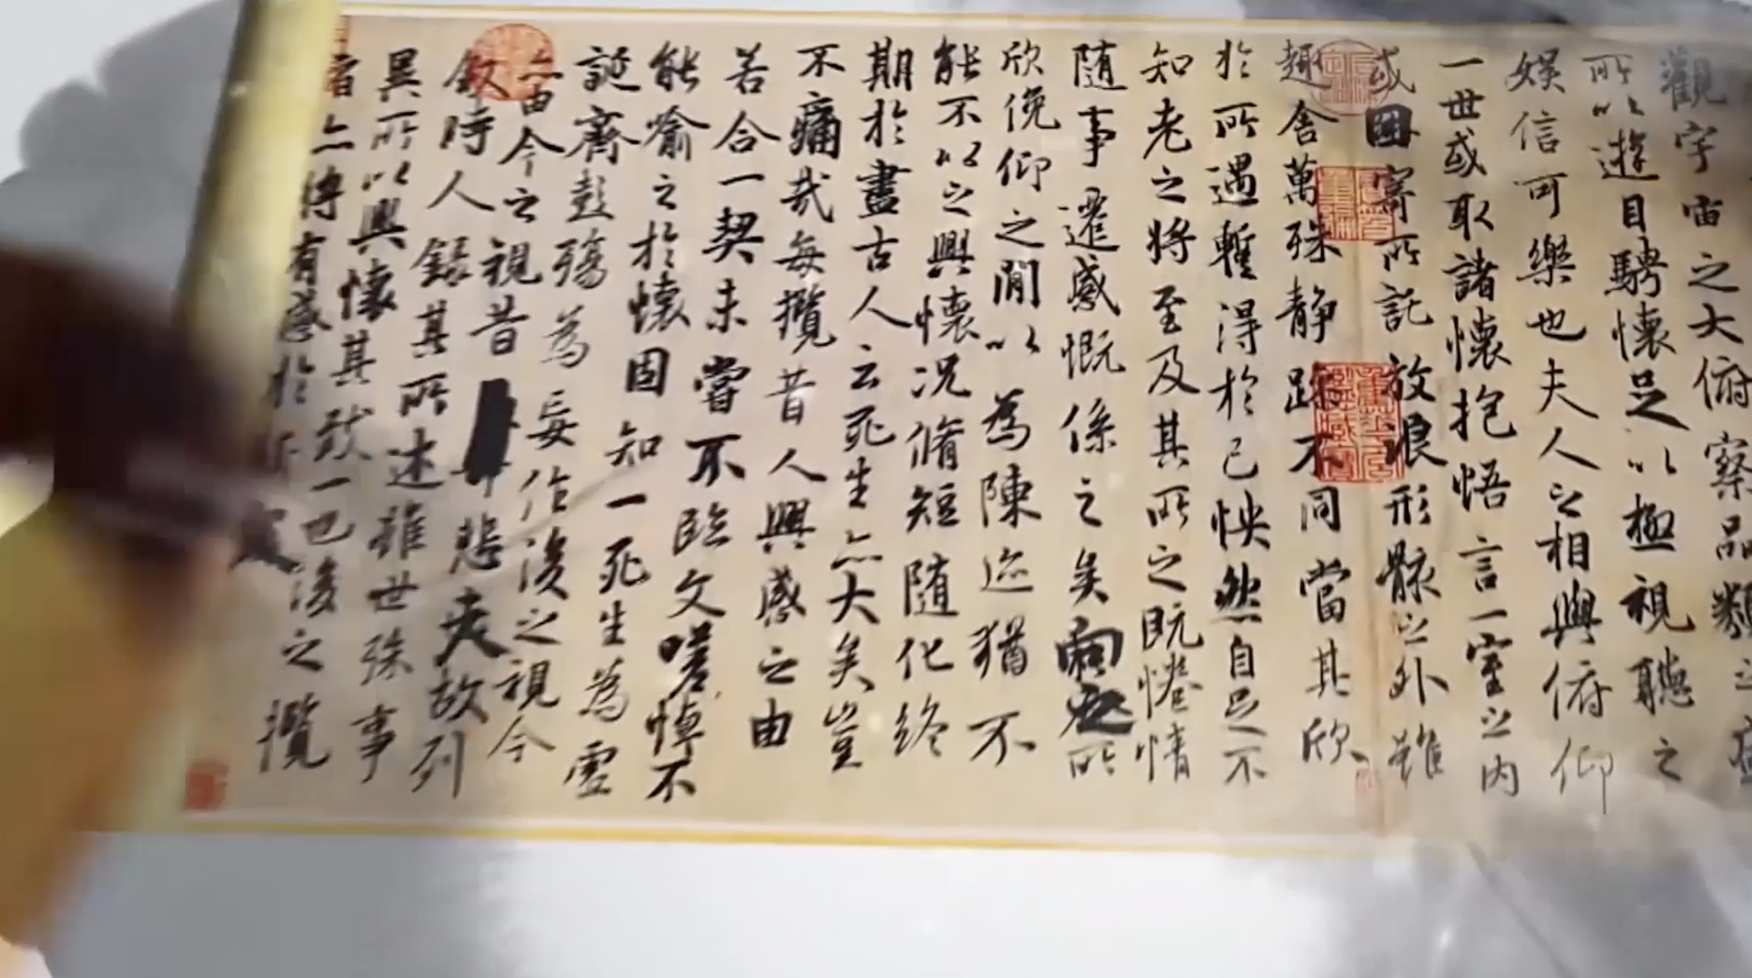 觀宇宙之大俯察品類之盛
所以遊目騁懷足以極視聽之
娛信可樂也夫人之相與俯仰
一世或取諸懷抱悟言一室之內
或因寄所託放浪形骸之外雖
趣舍萬殊静躁不同當其欣
於所遇蹔得於己怏然自足不
知老之將至及其所之既惓情
隨事遷感慨係之矣向之所
欣俛仰之閒以為陳迹猶不
能不以之興懷況脩短隨化終
期於盡古人云死生亦大矣豈
不痛哉每攬昔人興感之由
若合一契未嘗不臨文嗟悼不
能喻之於懷固知一死生為虛
誕齊彭殤為妄作後之視今
亦由今之視昔悲夫故列
敘時人錄其所述雖世殊事
異所以興懷其致一也後之攬
者亦將有感於